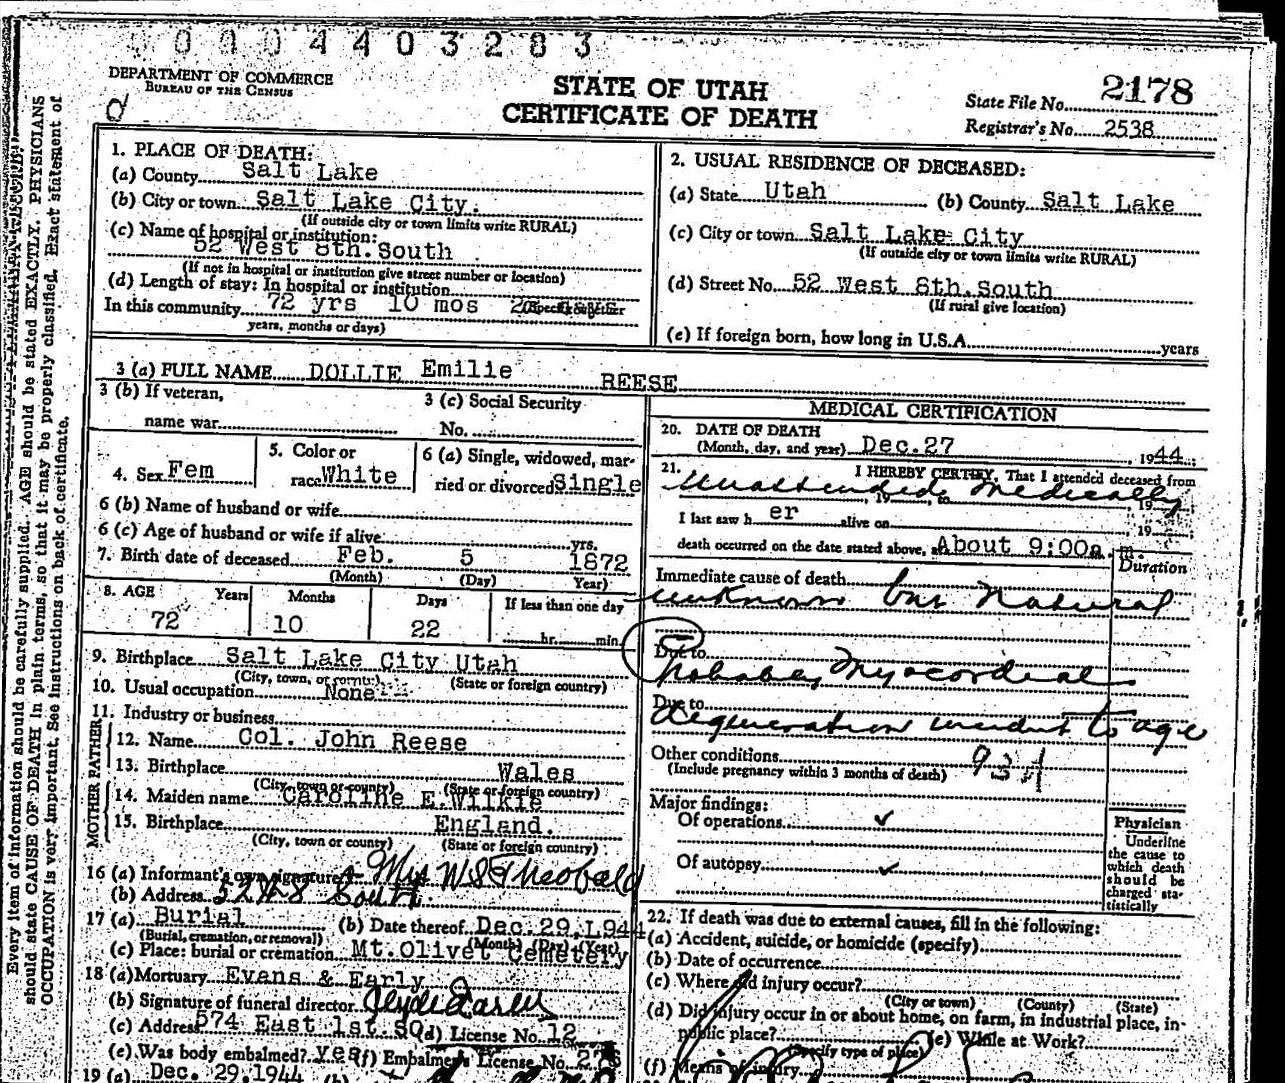 0004403283
DEPARTMENT OF COMMERCE
BUREAU OF THE CENSUS
STATE OF UTAH
CERTIFICATE OF DEATH
State File No. 2178
Registrar's No. 2538
Every item of information should be carefully supplied. AGE should be stated EXACTLY. PHYSICIANS
should state CAUSE OF DEATH in plain terms, so that it may be properly classified. Exact statement of
OCCUPATION is very important. See instructions on back of certificate.
1. PLACE OF DEATH:
(a) County Salt Lake
(b) City or town Salt Lake City.
(If outside city or town limits write RURAL)
(c) Name of hospital or institution:
52 West 8th.South
(If not in hospital or institution give street number or location)
(d) Length of stay: In hospital or institution
In this community 72 yrs 10 mos
years, months or days)
2. USUAL RESIDENCE OF DECEASED:
(a) State Utah (b) County Salt Lake
(c) City or town Salt Lake City
(If outside city or town limits write RURAL)
(d) Street No. 52 West 8th.South
(If rural give location)
(e) If foreign born, how long in U.S.A. years
3 (a) FULL NAME DOLLIE Emilie REESE
3 (b) If veteran,
name war
3 (c) Social Security
No.
4. Sex Fem
5. Color or
race White
6 (a) Single, widowed, mar-
ried or divorced Single
6 (b) Name of husband or wife
6 (c) Age of husband or wife if alive yrs.
7. Birth date of deceased Feb. 5 1872
(Month) (Day) Year)
8. AGE Years Months Days If less than one day
72 10 22 hr. min.
9. Birthplace Salt Lake City Utah
(City, town, or county) (State or foreign country)
10. Usual occupation None
11. Industry or business
FATHER
12. Name Col. John Reese
13. Birthplace Wales
(City, town or county) (State or foreign country)
MOTHER
14. Maiden name Caroline E.Wilkie
15. Birthplace England.
(City, town or county) (State or foreign country)
16 (a) Informant's own signature Mrs W S Theobald
(b) Address 52 W 8 South.
17 (a) Burial (b) Date thereof Dec.29,1944
(Burial, cremation, or removal) (Month) (Day) (Year)
(c) Place: burial or cremation Mt.Olivet Cemetery
18 (a) Mortuary Evans & Early
(b) Signature of funeral director
(c) Address 574 East 1st.SO (d) License No. 12
(e) Was body embalmed? yes (f) Embalmer's License No.
19 (a) Dec. 29,1944 (b)
MEDICAL CERTIFICATION
20. DATE OF DEATH
(Month, day, and year) Dec.27 , 1944
21. I HEREBY CERTIFY, That I attended deceased from
Unattended Medically
, 19 , to , 19
I last saw h er alive on , 19
death occurred on the date stated above, at About 9:00a.m.
Duration
Immediate cause of death
unknown but Natural
Due to
Probably Myocardial
Due to
degeneration incident to age
Other conditions 93A
(Include pregnancy within 3 months of death)
Major findings:
Of operations ✓
Of autopsy ✓
Physician
Underline
the cause to
which death
should be
charged sta-
tistically
22. If death was due to external causes, fill in the following:
(a) Accident, suicide, or homicide (specify)
(b) Date of occurrence
(c) Where did injury occur?
(City or town) (County) (State)
(d) Did injury occur in or about home, on farm, in industrial place, in-
public place? (e) While at Work?
(Specify type of place)
(f) Means of injury